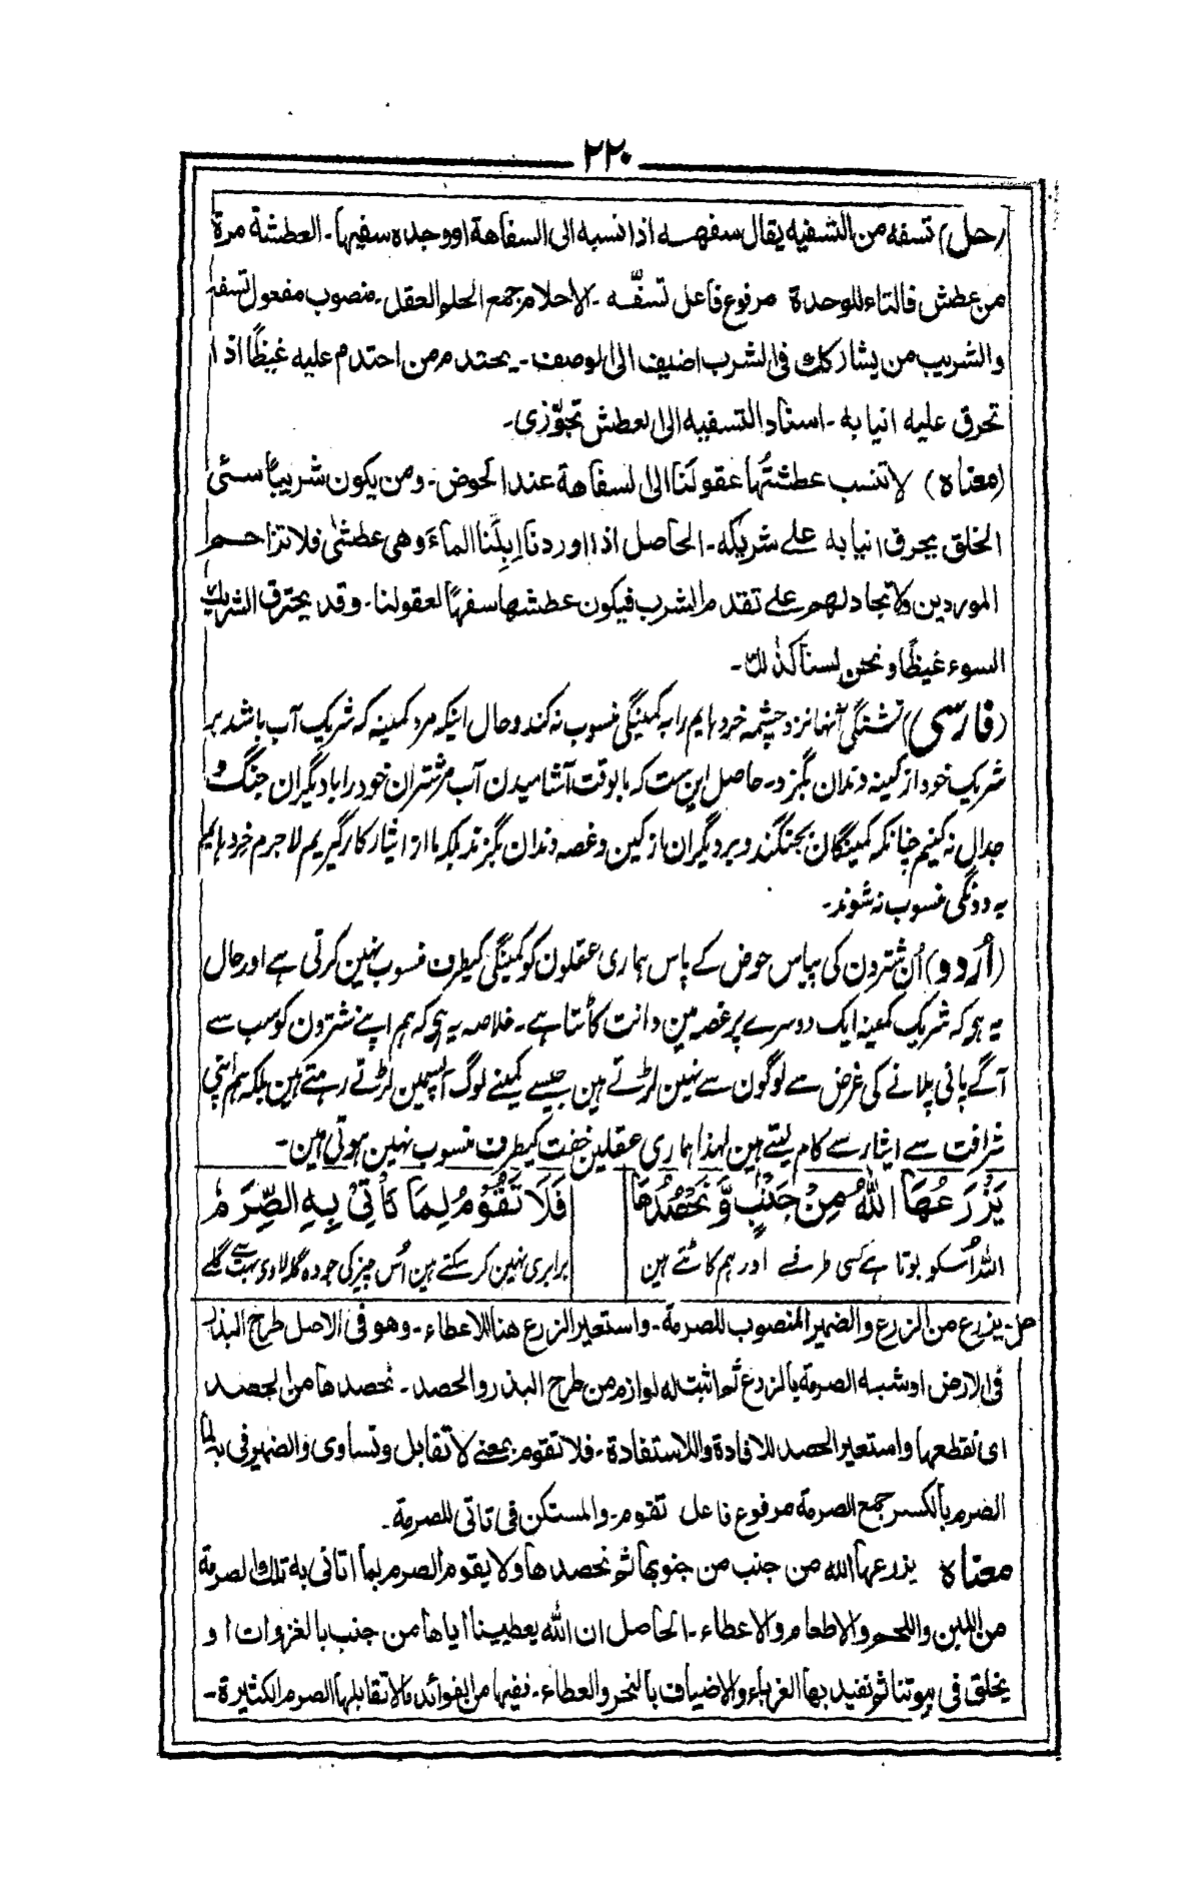 ۲۲۰
(حل) تسفه من التسفیه یقال سفهه اذا نسبه الی السفاهة او وجده سفیها۔ العطشة مرة
من عطش فالتاء للوحدة مرفوع فاعل تسفّه۔ الاحلام جمع الحلم العقل۔ منصوب مفعول تسفه
والشریب من یشارکک فی الشرب اضیف الی الوصف۔ یحتدم من احتدم علیه غیظًا اذا
تحرق علیه انیابه۔ اسناد التسفیه الی العطش تجوّزی۔
(معناه) لا تنسب عطشتُها عقولَنا الی السفاهة عند الحوض۔ ومن یکون شریبًا سئی
الخلق یحرق انیابه علے شریکه۔ الحاصل اذا اوردنا اِبِلَنا الماءَ وهی عطشیٰ فلا تزاحم
الموردین ولا تجادلهم علے تقدم الشرب فیکون عطشها سفهًا لعقولنا۔ وقد یحترق الشریک
السوء غیظًا و نحن لسنا کذٰلک۔
(فارسی) تشنگی آنها نزد چشمه خردهایم را به کمینگی منسوب نه کند و حال اینکه مرد کمینه که شریک آب باشد بر
شریک خود از کینه دندان بگزد۔ حاصل این ست که ما بوقت آشامیدن آب مر شتران خود را با دیگران جنگ و
جدال نه کنیم چنانکه کمینگان بجنگند و بر دیگران از کین و غصه دندان بگزند بلکه ما از ایثار کار گیریم لاجرم خردهایم
به دونگی منسوب نه شوند۔
(اُردو) اُن شترون کی پیاس حوض کے پاس ہماری عقلون کو کمینگی کیطرف منسوب نہین کرتی ہے اور حال
یہ ہی کہ شریک کمینہ ایک دوسرے پر غصہ مین دانت کاٹتا ہے۔ خلاصہ یہ ہی کہ ہم اپنے شترون کو سب سے
آگے پانی پلانے کی غرض سے لوگون سے نہین لڑتے ہین جیسے کمینے لوگ آپسمین لڑتے رہتے ہین بلکہ ہم اپنی
شرافت سے ایثار سے کام لیتے ہین لہذا ہماری عقلین خفت کیطرف منسوب نہین ہوتی ہین۔
یَزْرَعُهَا اللّٰهُ مِنْ جَنْبٍ وَّ نَحْصُدُهَا فَلَا تَقُوْمُ لِمَا تَأْتِیْ بِهِ الصِّرَمُ
اللہ اُسکو بوتا ہے کسی طرف سے اور ہم کاٹتے ہین برابری نہین کر سکتے ہین اُس چیز کی جو وہ گلہ لاوی بہت سے گلے
حل۔ یزرع من الزرع والضمیر المنصوب للصرمة۔ واستعیر الزرع هنا للاعطاء۔ وهو فی الاصل طرح البذر
فی الارض او شبه الصرمة بالزرع ثم اثبت له لوازم من طرح البذر والحصد۔ نحصدها من الحصد
ای نقطعها واستعیر الحصد للافادة والاستفادة۔ فلا تقوم بمعنے لا تقابل وتساوی والضمیر فی به لما
الصرم بالکسر جمع الصرمة مرفوع فاعل تقوم۔ والمستکن فی تاتی للصرمة۔
معناه یزرعها الله من جنب من جنوبها ثم نحصدها ولا یقوم الصرم بما اتانی به تلک الصرمة
من اللبن واللحم والاطعام والاعطاء۔ الحاصل ان الله یعطینا ایاها من جنب بالغزوات او
یخلق فی بیوتنا ثم نفید بها الغرباء والاضیاف بالنحر والعطاء۔ ففیها من الفوائد مالا تقابلها الصرم الکثیرة۔